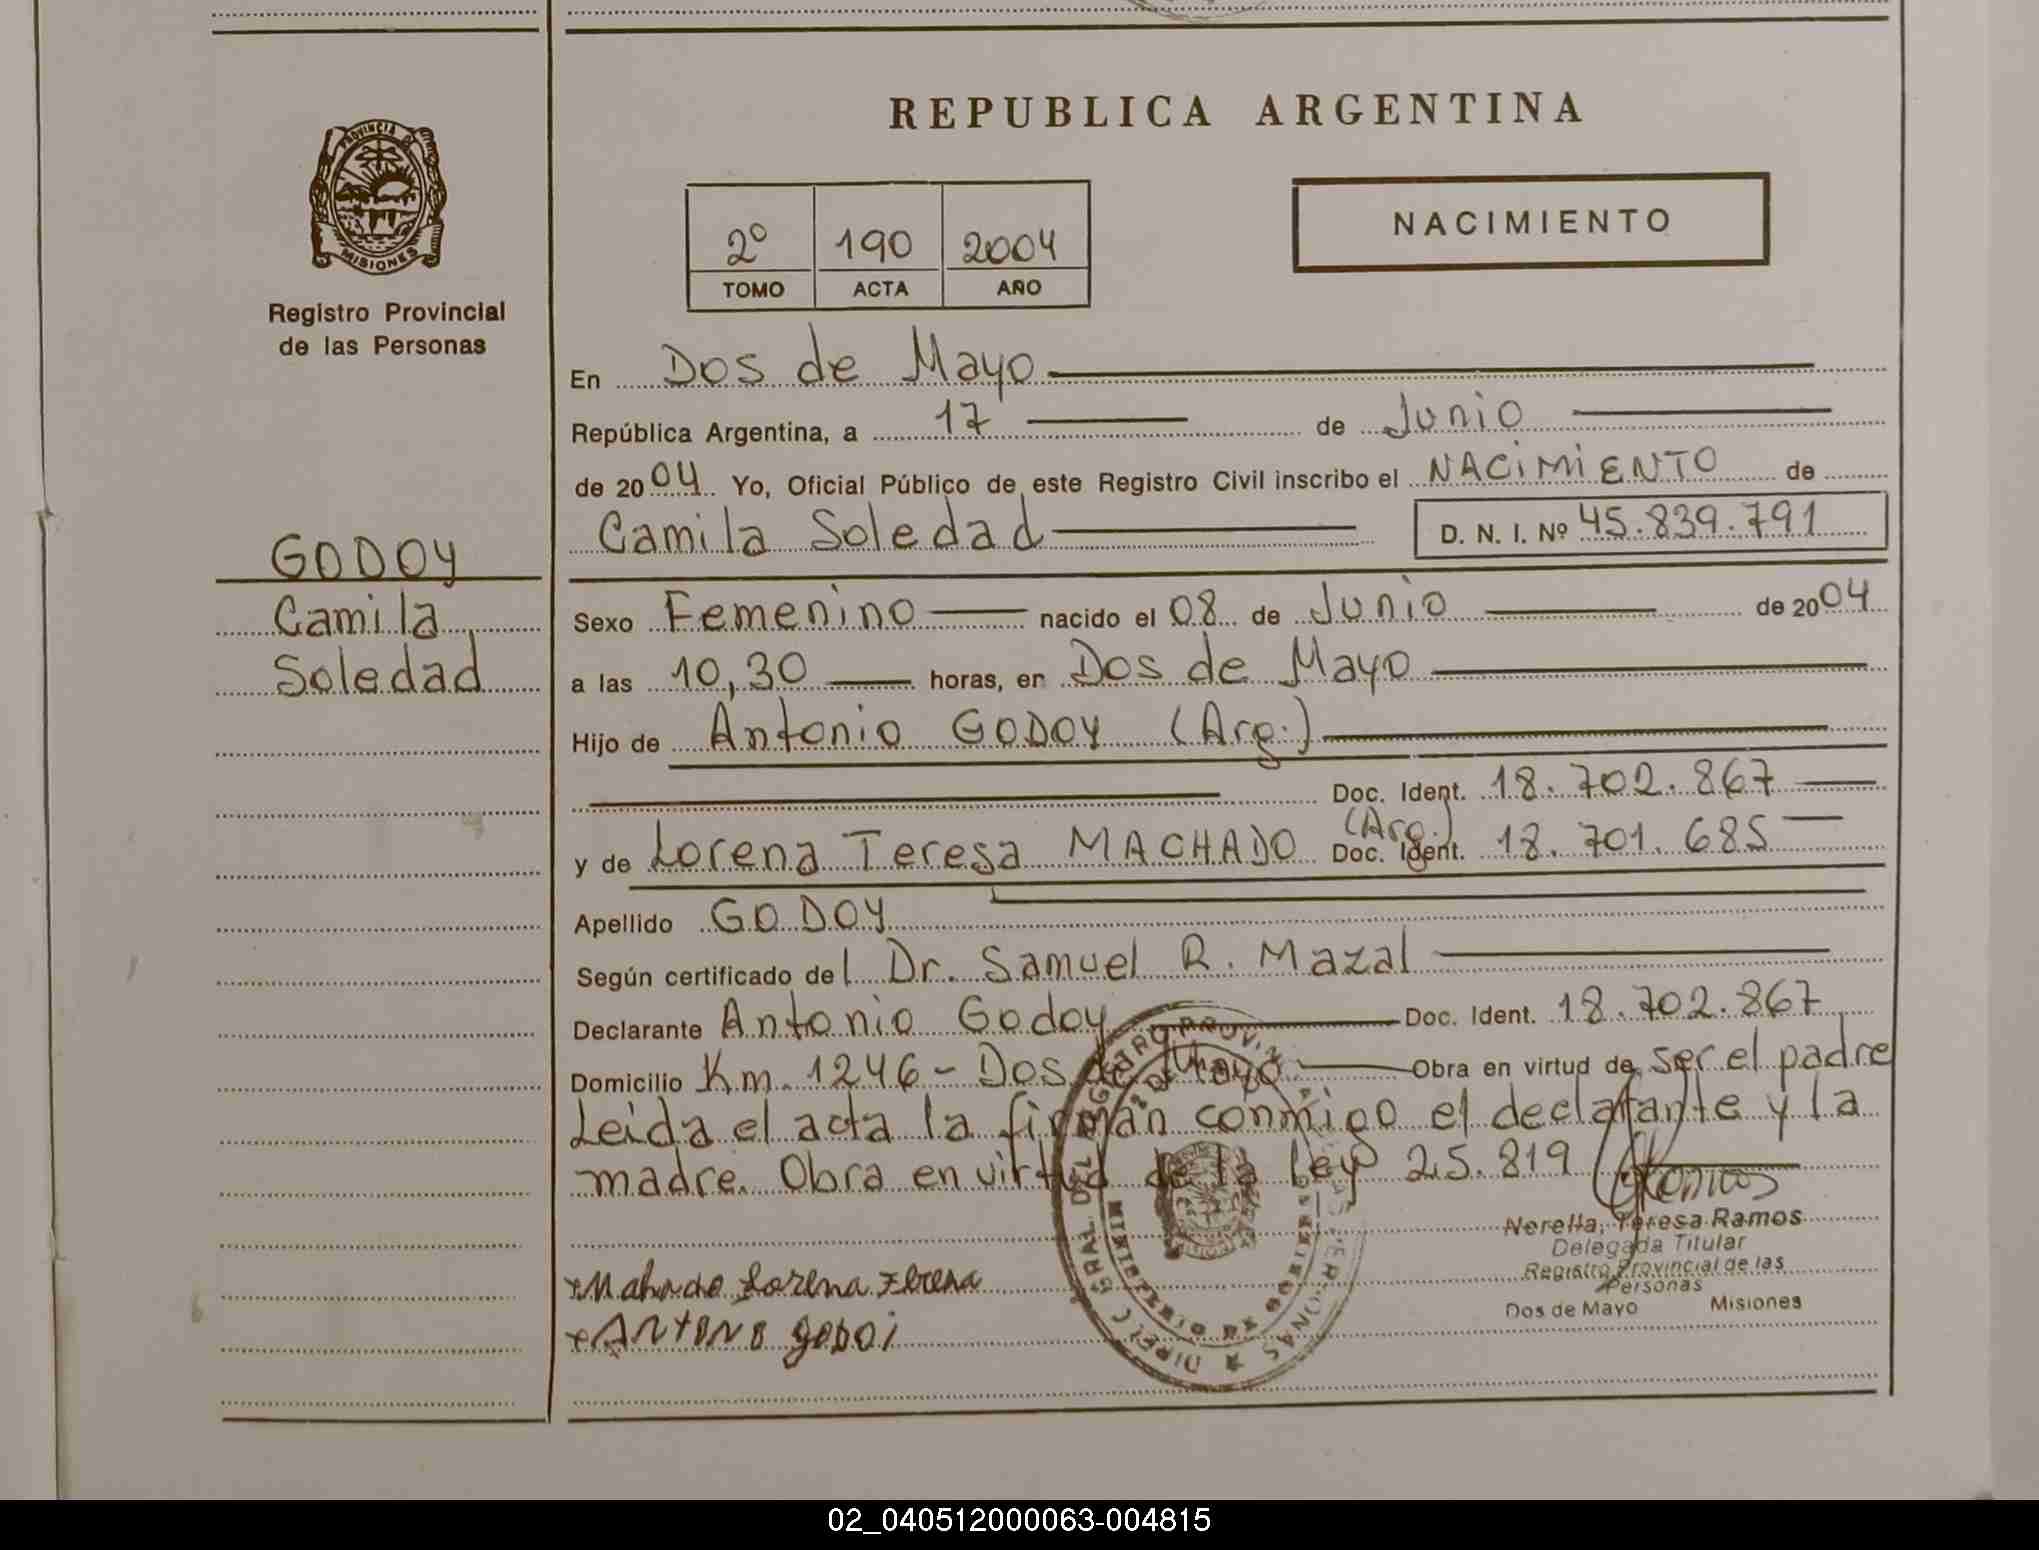 REPUBLICA ARGENTINA
PROVINCIA DE
MISIONES
Registro Provincial
de las Personas
2º 190 2004
TOMO ACTA AÑO
NACIMIENTO
En Dos de Mayo
República Argentina, a 17 de Junio
de 2004 Yo, Oficial Público de este Registro Civil inscribo el NACIMIENTO de
Camila Soledad D. N. I. Nº 45.839.791
GODOY
Camila
Soledad
Sexo Femenino nacido el 08 de Junio de 2004
a las 10,30 horas, en Dos de Mayo
Hijo de Antonio GODOY (Arg.)
Doc. Ident. 18.702.867
y de Lorena Teresa MACHADO (Arg.) Doc. Ident. 18.701.685
Apellido GODOY
Según certificado del Dr. Samuel R. Mazal
Declarante Antonio Godoy Doc. Ident. 18.702.867
Domicilio Km. 1246 - Dos de Mayo Obra en virtud de ser el padre
Leida el acta la firman conmigo el declarante y la
madre. Obra en virtud de la Ley 25.819
Norella, Teresa Ramos
Delegada Titular
Registro Provincial de las
Personas
Dos de Mayo Misiones
Lorena
Antonio godoi
02_040512000063-004815